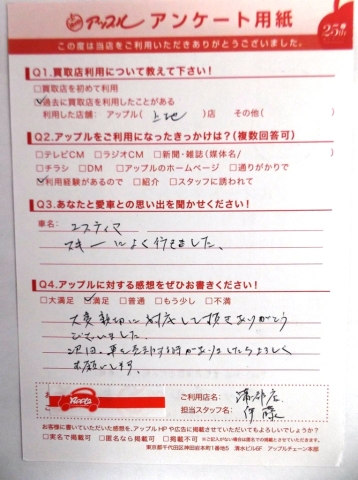 アップル アンケート用紙 25th
この度は当店をご利用いただきありがとうございました。
Q1.買取店利用について教えて下さい!
□買取店を初めて利用
☑過去に買取店を利用したことがある
利用した店舗: アップル( 上地 )店 その他( )
Q2.アップルをご利用になったきっかけは?(複数回答可)
□テレビCM □ラジオCM □新聞・雑誌(媒体名/ )
□チラシ □DM □アップルのホームページ □通りがかりで
☑利用経験があるので □紹介 □スタッフに誘われて
Q3.あなたと愛車との思い出を聞かせてください!
車名: エスティマ
スキーによく行きました。
Q4.アップルに対する感想をぜひお書きください!
□大満足 ☑満足 □普通 □もう少し □不満
大変親切に対応して頂きありがとう
ございました。
次回、車を売却する時がありましたらよろしく
お願いします。
ご利用店名: 蒲郡店
担当スタッフ名: 伊藤
お客様に書いていただいた感想を、アップルHPや広告に掲載させていただいてもよろしいでしょうか?
□実名で掲載可 □匿名なら掲載可 □掲載不可 ※ご記入がない場合は匿名での掲載とさせていただきます。
東京都千代田区神田岩本町1番地5 清水ビル6F アップルチェーン本部